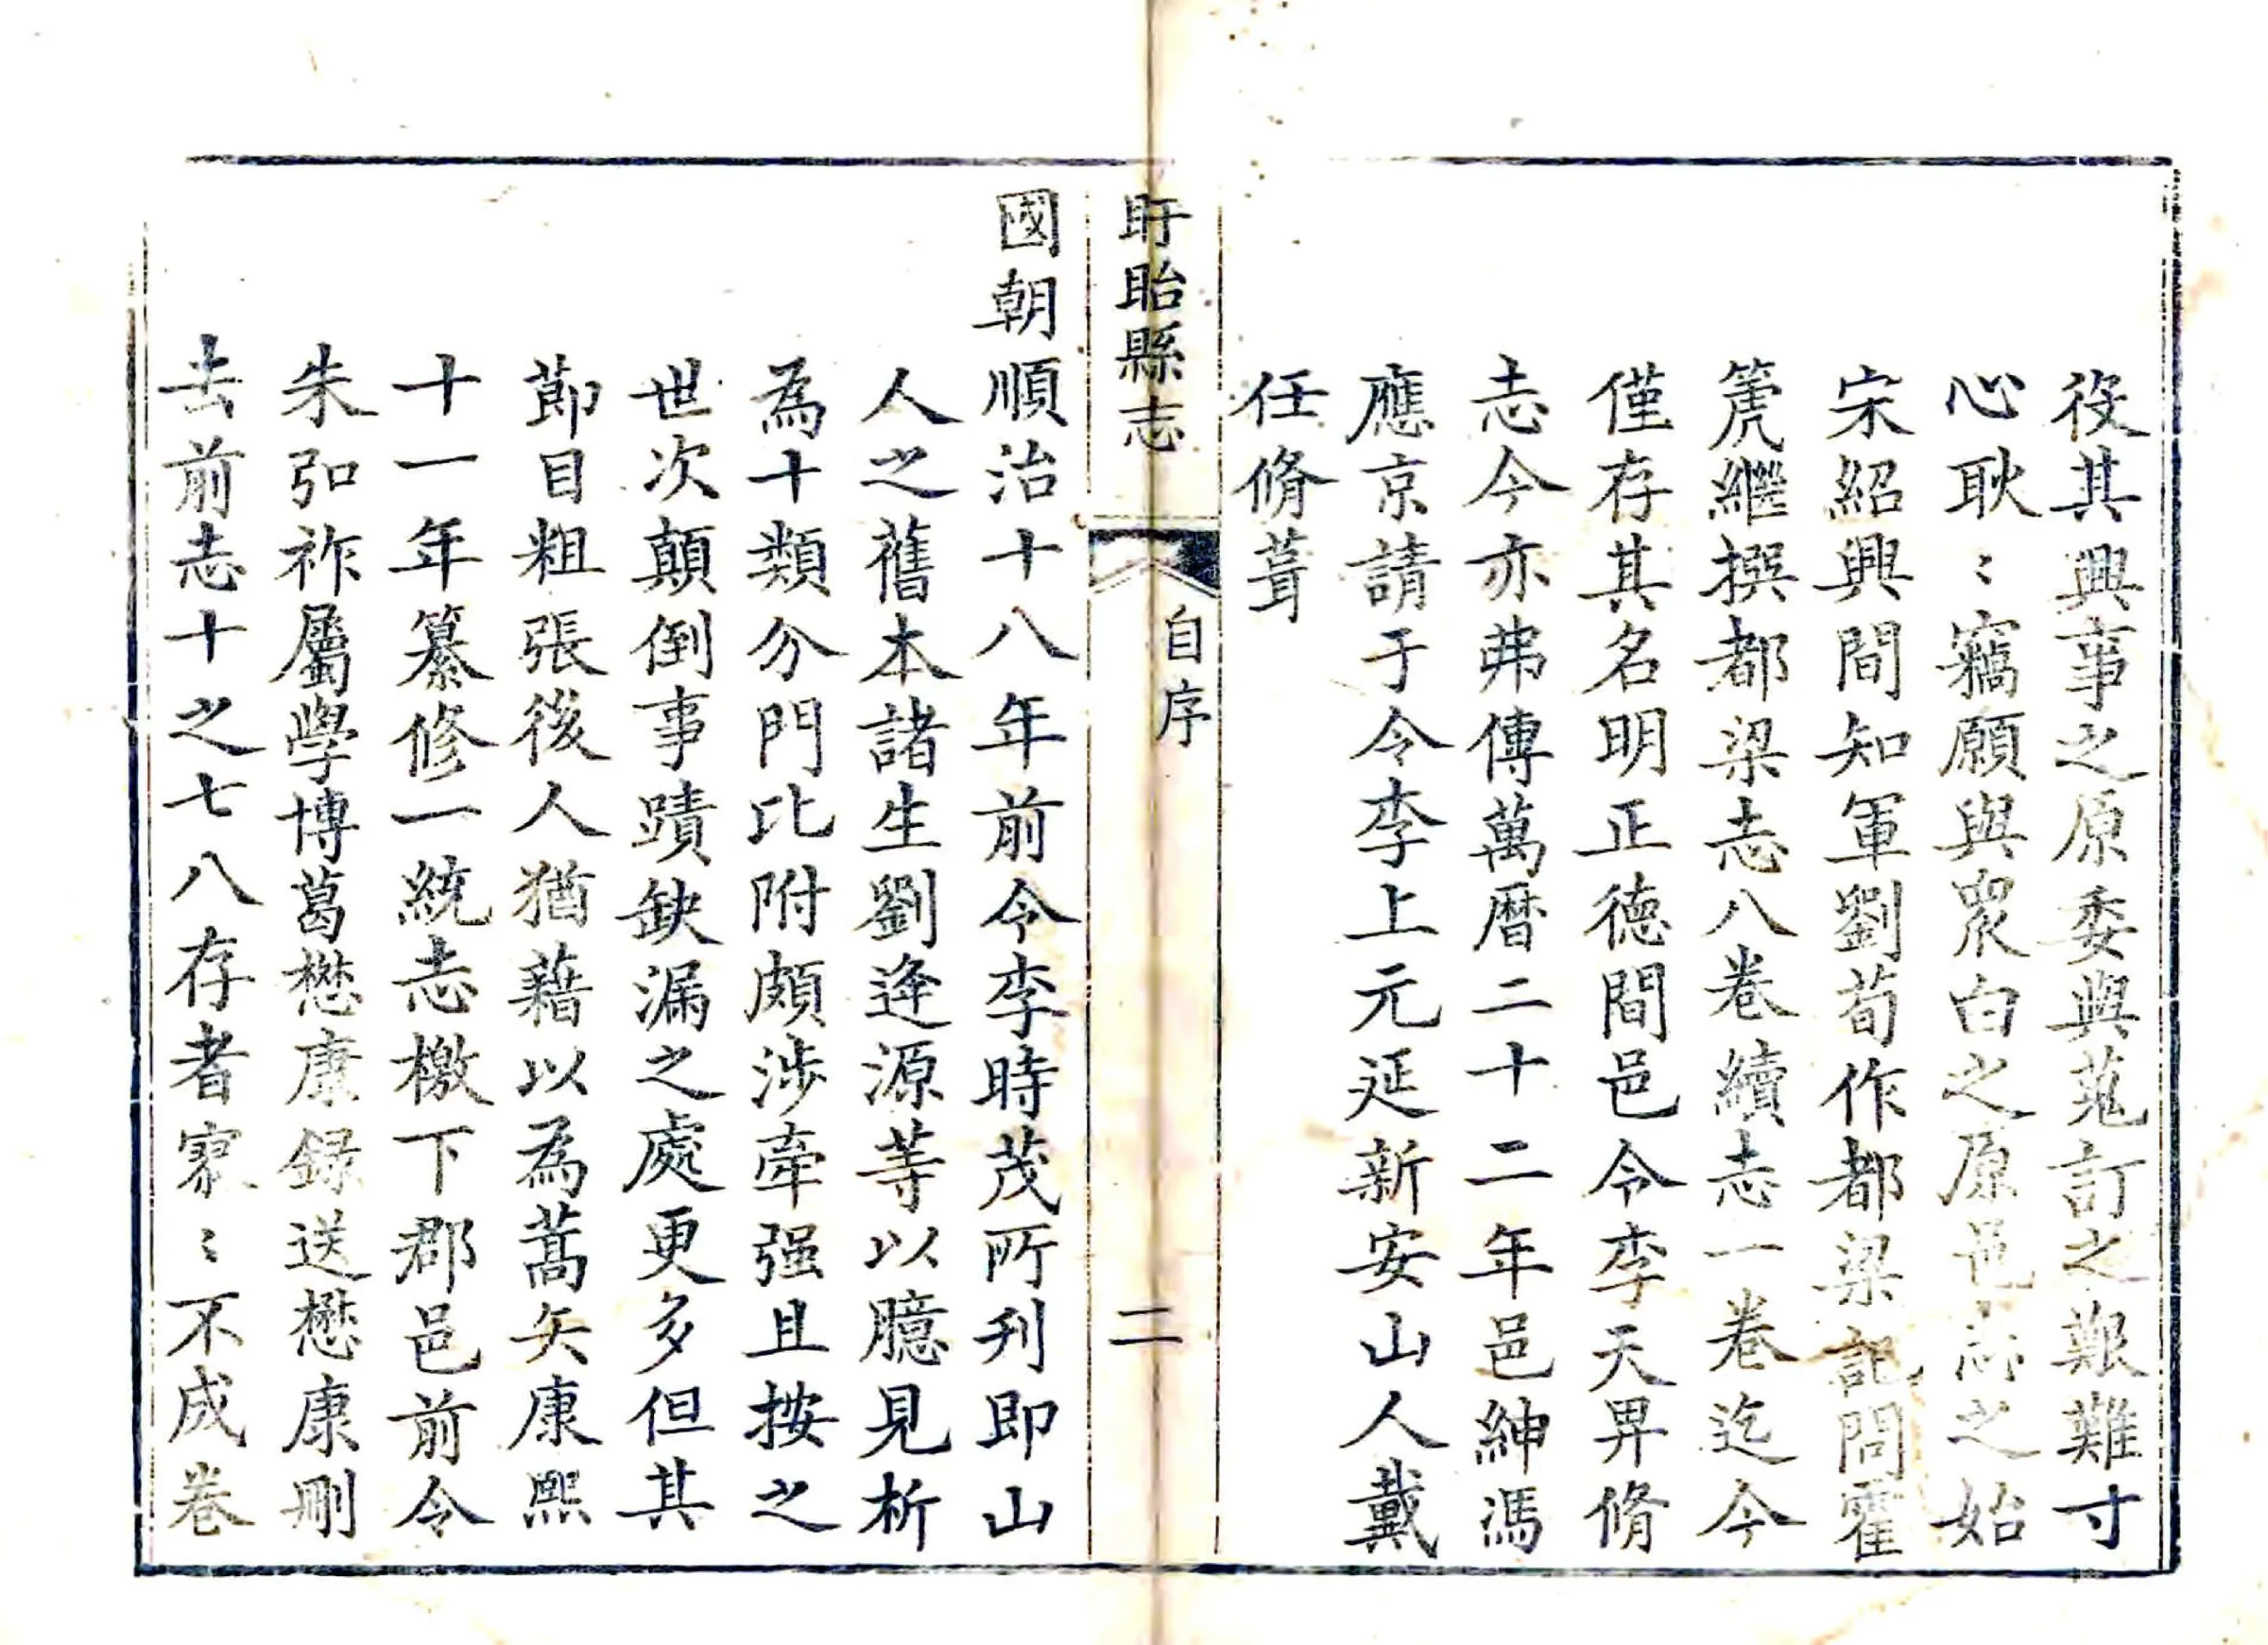 役其興事之原委與蒐訂之艱難寸
心耿〻竊願與眾白之原邑志之始
宋紹興間知軍劉荀作都梁記問霍
篪繼撰都梁志八卷續志一卷迄今
僅存其名明正德間邑令李天畀脩
志今亦弗傳萬曆二十二年邑紳馮
應京請于令李上元延新安山人戴
任脩葺
盱眙縣志
自序
二
國朝順治十八年前令李時茂所刋即山
人之舊本諸生劉逢源等以臆見析
為十類分門比附頗涉牽强且按之
世次顛倒事蹟缺漏之處更多但其
節目粗張後人猶藉以為蒿矢康熙
十一年纂修一統志檄下郡邑前令
朱弘祚屬學博葛懋康録送懋康刪
去前志十之七八存者寥〻不成卷